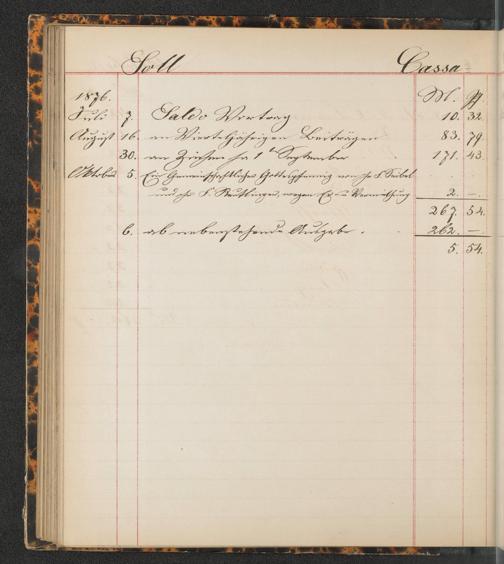 Soll Cassa
1876. M. ₰
Juli 7. Saldo Vortrag 10. 32.
August 16. an Vierteljährigen Beiträgen 83. 79.
30. an Zinsen pr 1t September 171. 43.
Oktober 5. Ein Gemeinschaftliches Gottespfennig von
und wegen 2. —.
267. 54.
6. ab nebenstehende Ausgabe. 262. —.
5. 54.